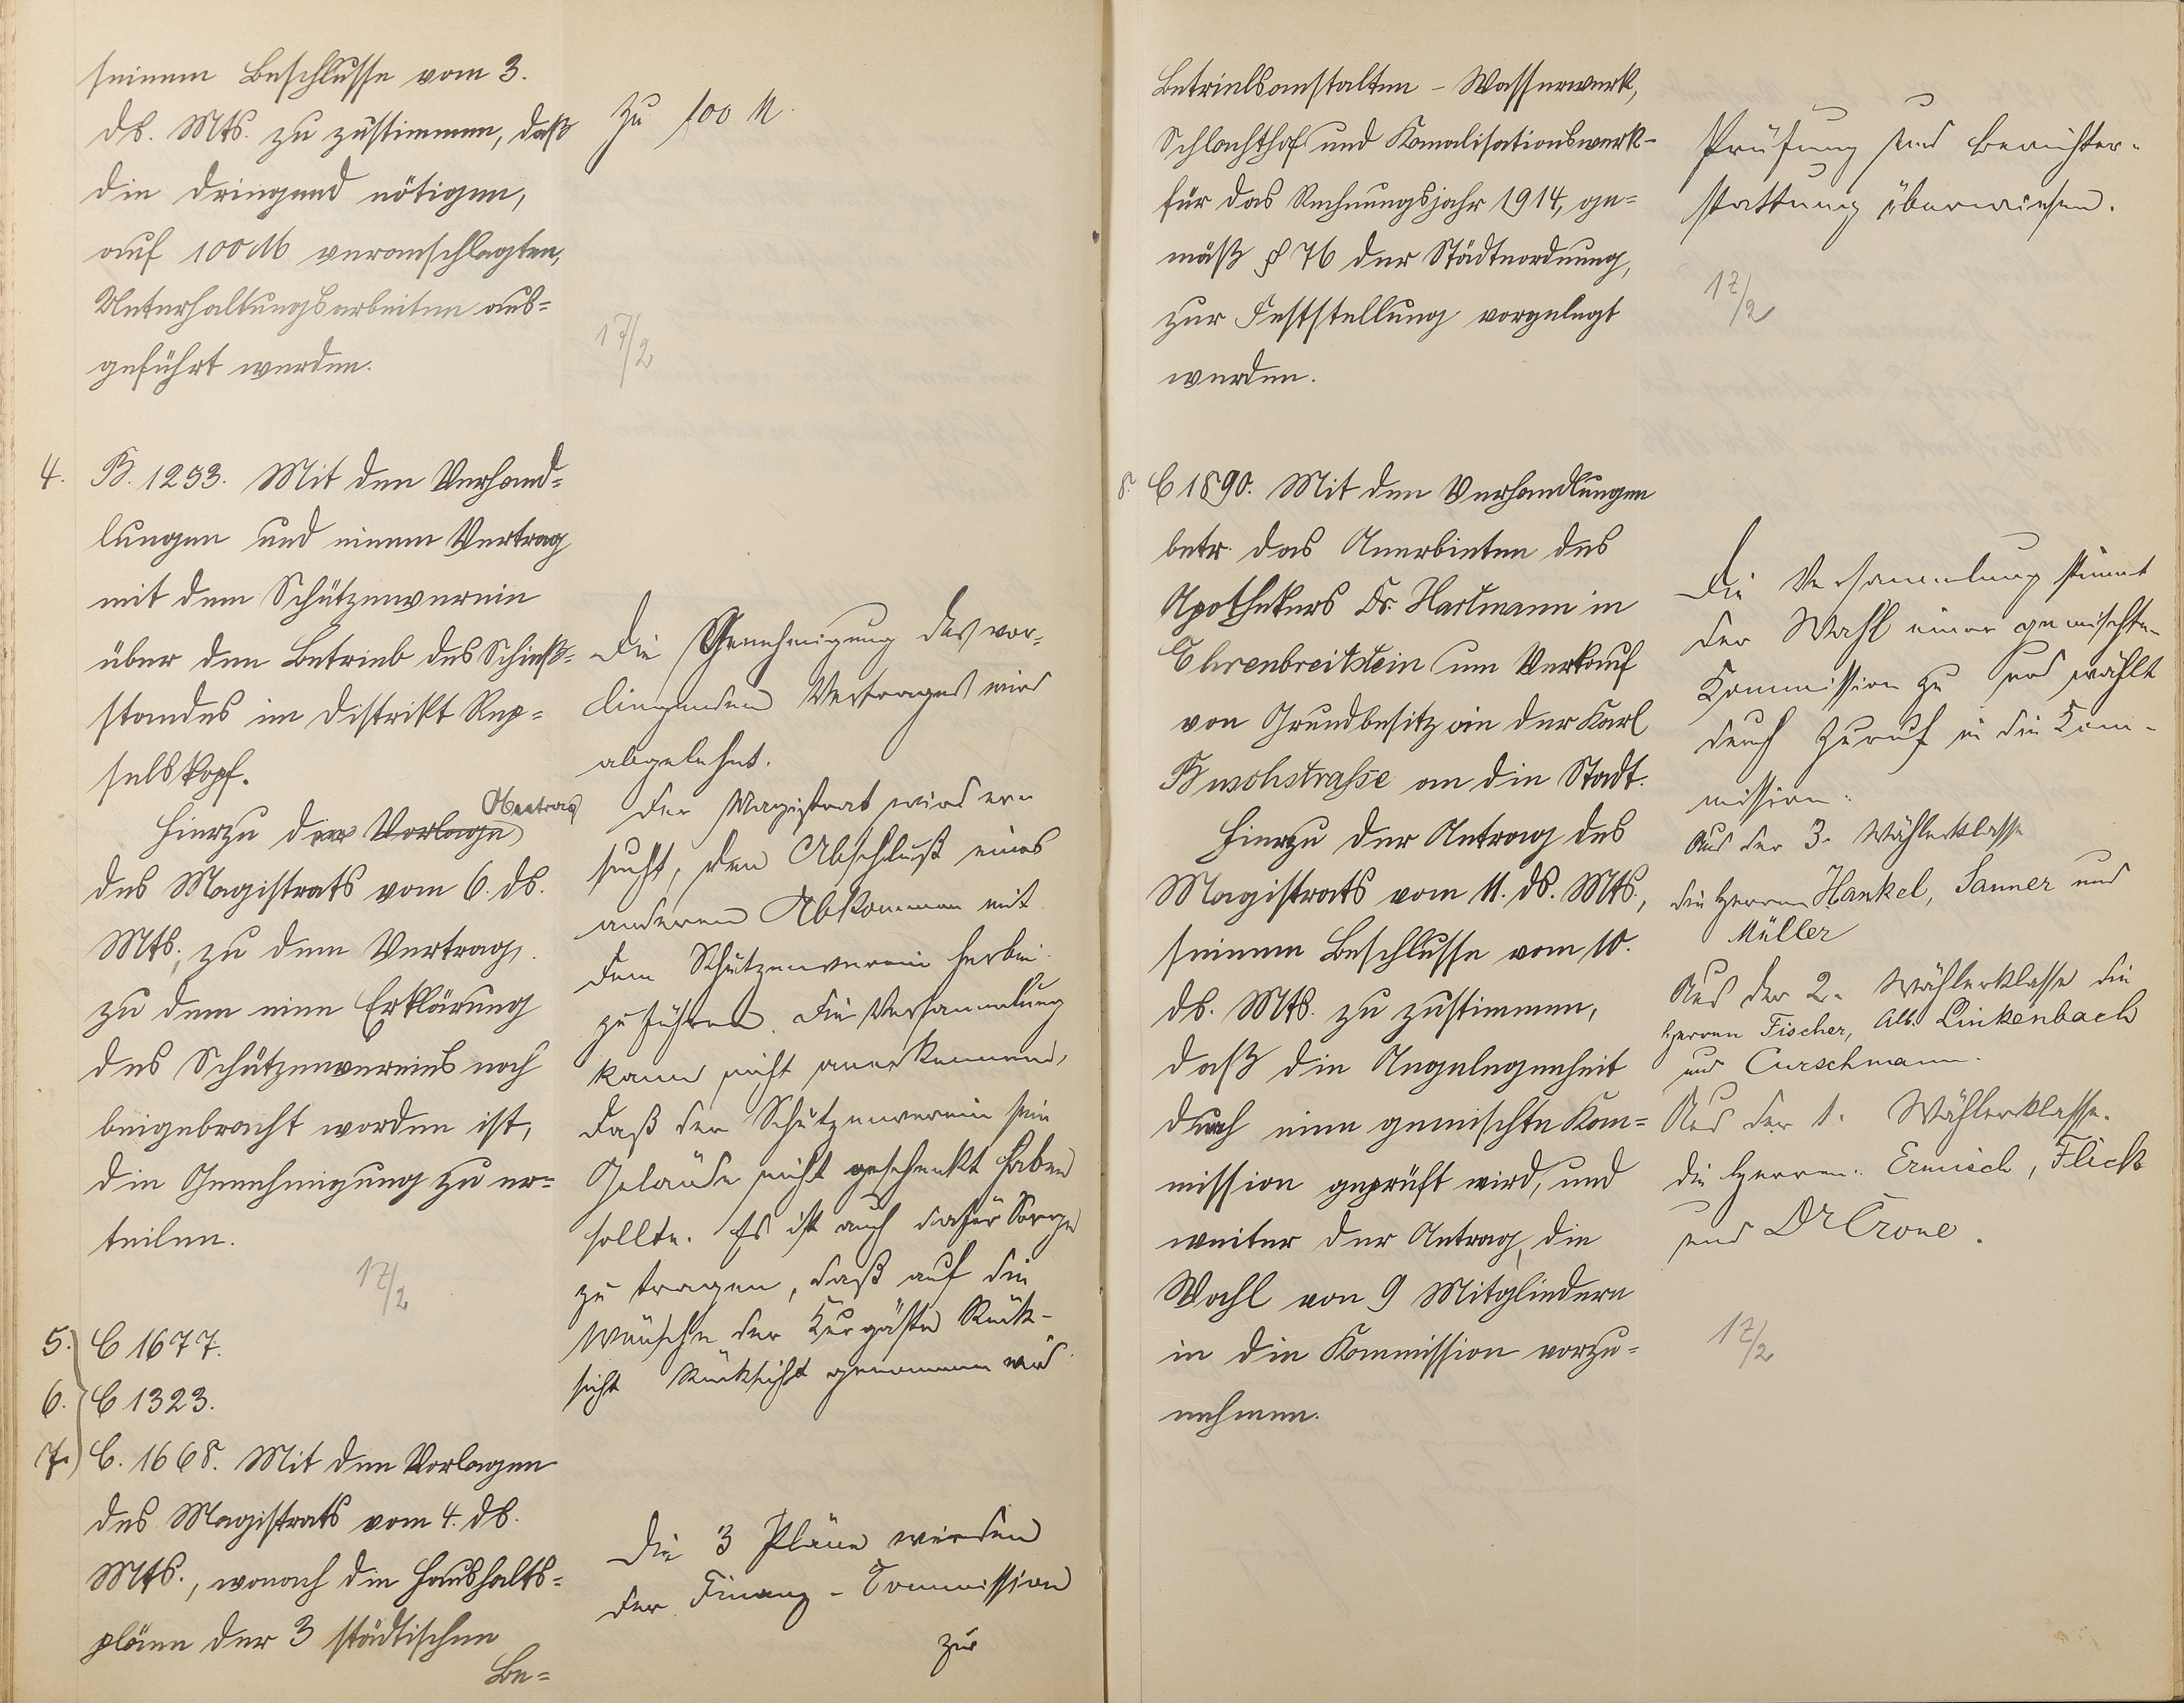 seinem Beschlusse vom 3.
ds. Mts. zu zustimmen, daß
die dringend nötigen,
auf 100 M veranschlagten,
Unterhaltungsarbeiten aus=
geführt werden.
zu 100 M.
17/2
4. B. 1253. Mit den Verhand=
lungen und einem Vertrag
mit dem Schützenverein
über den Betrieb des Schieß=
standes im Distrikt Rep=
selskopf.
Hierzu der Vorlage Antrag
des Magistrats vom 6. ds.
Mts., zu dem Vertrag,
zu dem eine Erklärung
des Schützenvereins noch
beigebracht worden ist,
die Genehmigung zu er=
teilen.
17/2
Die Genehmigung des vor=
liegenden Vertrages wird
abgelehnt.
Der Magistrat wird er=
sucht, den Abschluß eines
anderen Abkommen mit
dem Schützenverein herbei
zu führen. Die Versammlung
kann nicht anerkennen,
daß der Schützenverein sein
Gelände nicht geschenkt haben
sollte. Es ist auch dafür Sorge
zu tragen, daß auf die
Wünsche der Kurgäste Rück-
sicht Rücksicht genommen wird.
5. C 1677.
6. C 1323.
7. C. 1668. Mit den Vorlagen
des Magistrats vom 4. ds.
Mts., wonach die Haushalts=
pläne der 3 städtischen
Be=
Die 3 Pläne werden
der Finanz-Commission
zur
Betriebsanstalten – Wasserwerk,
Schlachthof und Kanalisationswerk –
für das Rechnungsjahr 1914, ge=
mäß § 76 der Städteordnung,
zur Feststellung vorgelegt
werden.
Prüfung und Berichter-
stattung überwiesen.
17/2
8. C 1890. Mit den Verhandlungen
betr. das Anerbieten des
Apothekers Dr. Hartmann in
Ehrenbreitstein um Verkauf
von Grundbesitz an der Karl
Buschstraße an die Stadt.
Hierzu der Antrag des
Magistrats vom 11. ds. Mts.,
seinem Beschlusse vom 10.
ds. Mts. zu zustimmen,
daß die Angelegenheit
durch eine gemischte Kom=
mission geprüft wird, und
weiter der Antrag, die
Wahl von 9 Mitgliedern
in die Kommission vorzu=
nehmen.
Die Versammlung stimmt
der Wahl einer gemischten
Kommission zu und wählt
durch Zuruf in die Kom-
mission:
Aus der 3. Wählerklasse
die Herren Hankel, Sanner und
Müller
Aus der 2. Wählerklasse die
Herren Fischer, Alb. Linkenbach
und Curschmann.
Aus der 1. Wählerklasse.
die Herren Ermisch, Flick
und Dr Crone.
17/2